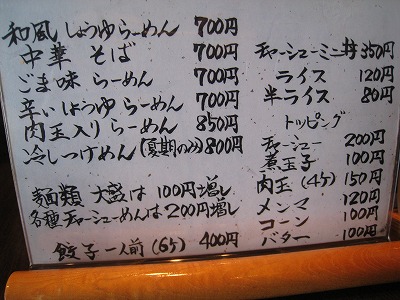 和風しょうゆらーめん 700円
中華そば 700円
ごま味らーめん 700円
辛いしょうゆらーめん 700円
肉玉入りらーめん 850円
冷しつけめん(夏期のみ)800円
麺類 大盛は100円増し
各種チャーシューめんは200円増し
餃子一人前(6ケ) 400円
チャーシューミニ丼 350円
ライス 120円
半ライス 80円
トッピング
チャーシュー 200円
煮玉子 100円
肉玉(4ケ) 150円
メンマ 120円
コーン 100円
バター 100円